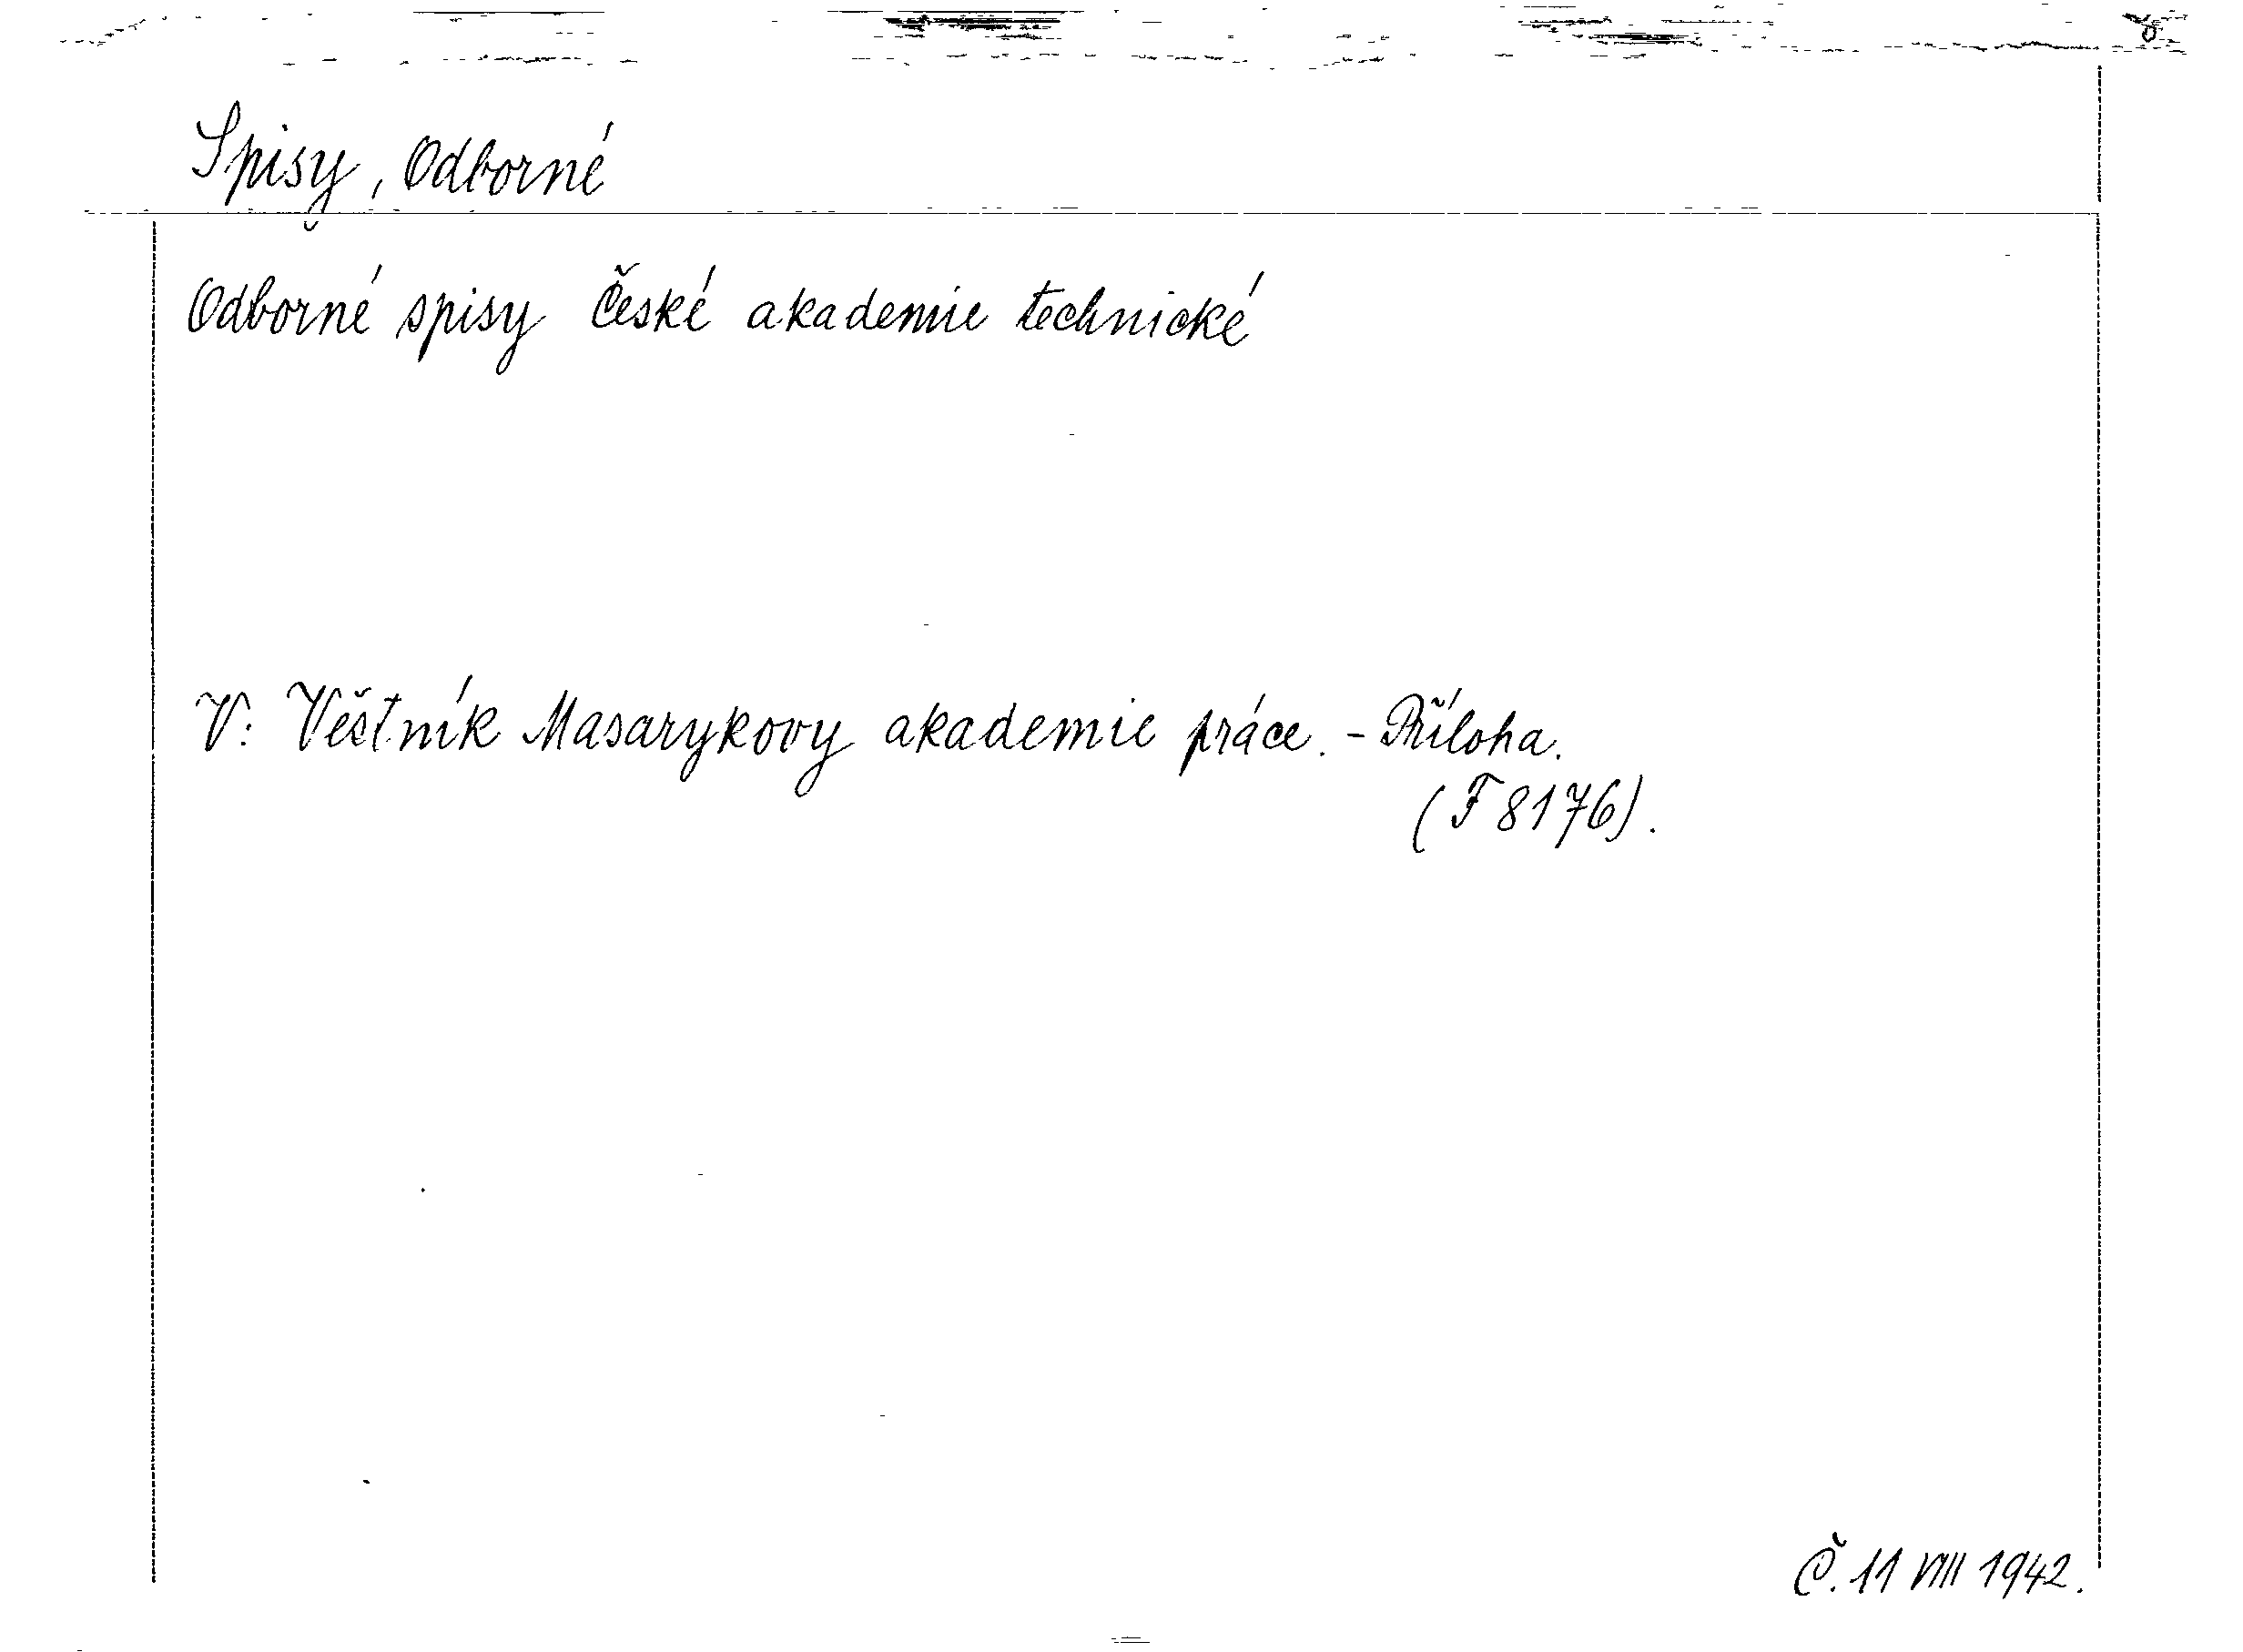 Spisy, Odborné
Odborné spisy České akademie technické
V: Věstník Masarykovy akademie práce. - Příloha.
(F 8176).
Č. 11 VIII 1942.